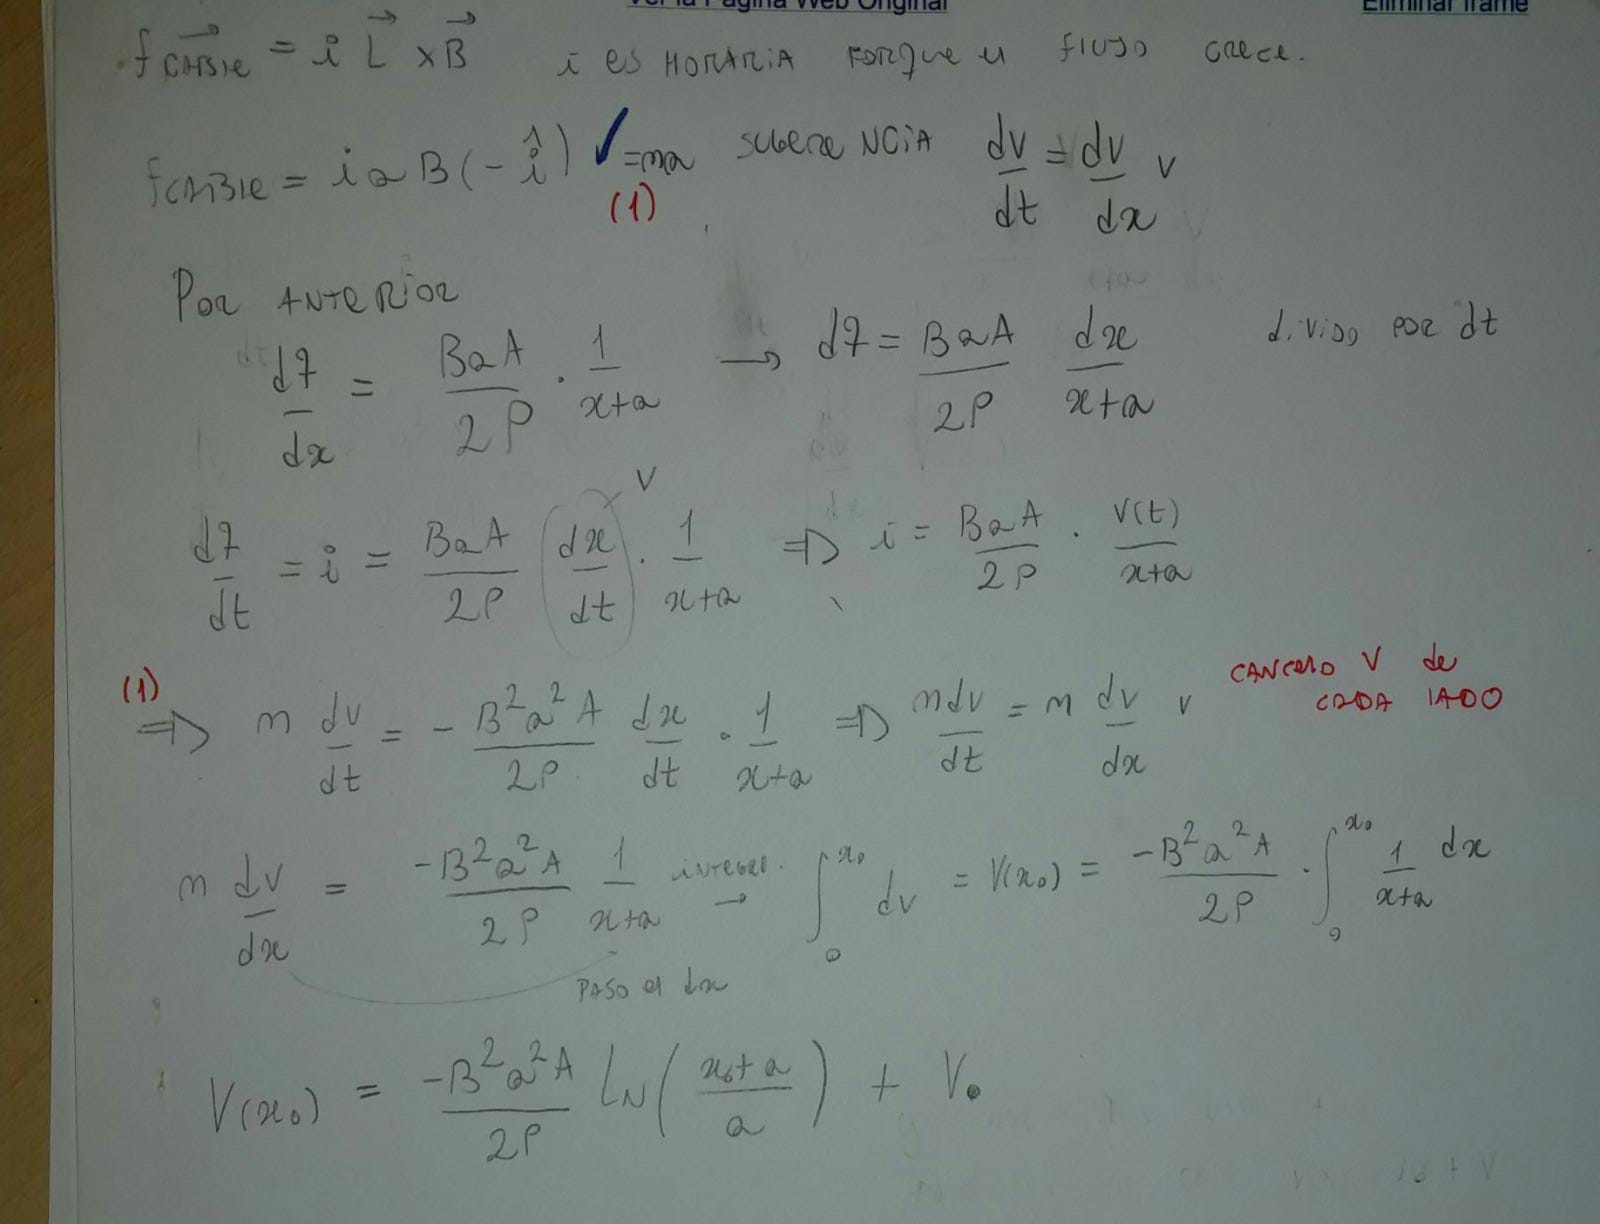 Ver la Página Web Original Eliminar iframe
f⃗ CABLE = i L⃗ × B⃗ i es HORARIA PORque el FlUJO CRECE.
f CABLE = i a B (-î) = ma SUGERENCIA dv/dt = dv/dx v
(1)
POR ANTERIOR
dq/dx = BaA/2ρ · 1/x+a → dq = BaA/2ρ dx/x+a divido POR dt
V
dq/dt = i = BaA/2ρ (dx/dt) · 1/x+a ⇒ i = BaA/2ρ · V(t)/x+a
(1) ⇒ m dv/dt = - B²a²A/2ρ dx/dt · 1/x+a ⇒ mdv/dt = m dv/dx v CANCElO V de CADA lADO
m dv/dx = -B²a²A/2ρ 1/x+a INTEGRO. → ∫₀^x₀ dv = V(x₀) = -B²a²A/2ρ · ∫₀^x₀ 1/x+a dx
PASO el dx
V(x₀) = -B²a²A/2ρ LN(x₀+a/a) + V₀